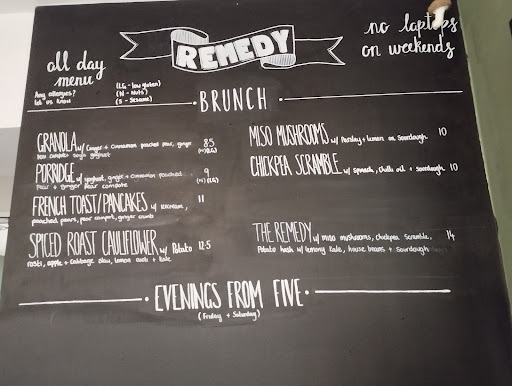 all day
menu
Any allergies?
let us know
(LG - low gluten)
(N - Nuts)
(S - Sesame)
REMEDY
no laptops
on weekends
BRUNCH
GRANOLA w/ Ginger + Cinnamon poached pear, ginger 8.5
pear compote + soya yoghurt (N)(LG)
PORRIDGE w/ yoghurt, ginger + cinnamon poached 9
pear + ginger pear compote (N)(LG)
FRENCH TOAST/PANCAKES w/ icecream, 11
poached pears, pear compote, ginger crumb
SPICED ROAST CAULIFLOWER w/ Potato 12.5
rosti, apple + cabbage slaw, lemon aioli + kale
MISO MUSHROOMS w/ Parsley + lemon on Sourdough 10
CHICKPEA SCRAMBLE w/ spinach, chilli oil + sourdough 10
THE REMEDY w/ miso mushrooms, chickpea scramble, 14
Potato hash w/ lemony kale, house beans + sourdough
EVENINGS FROM FIVE
(Friday + Saturday)